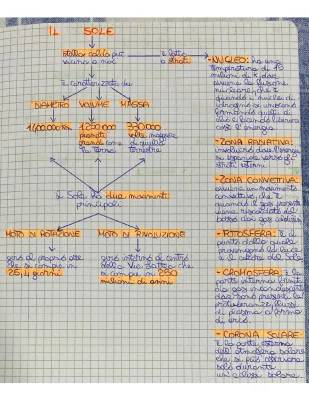 IL SOLE
stella calda più
vicina a noi
è fatto
a strati
è caratterizzata da
DIAMETRO VOLUME MASSA
1400.000 km
1.250.000
pianeti
grandi come
la Terra
330.000
volte maggiore
di quella
terrestre
Il Sole ha due movimenti
principali
MOTO DI ROTAZIONE
giro al proprio asse
che si compie in
25,4 giorni
MOTO DI RIVOLUZIONE
giro intorno al centro
della Via Lattea che
si compie in 250
milioni di anni
- NUCLEO: ha una
temperatura di 15
milioni di K dove
avviene la fusione
nucleare, che è
quando i nuclei di
idrogeno si uniscono
formando quelli di
elio e liberano
così l'energia
- ZONA RADIATIVA:
involucro dove l'energia
si espande verso gli
strati esterni
- ZONA CONVETTIVA:
avviene un movimento
convettivo, che è
quando il gas
viene
dal gas
- FOTOSFERA: è il
punto dalla quale
proviene la luce
e il calore del Sole
- CROMOSFERA: è la
parte interna
da gas incandescenti
dove sono presenti le
protuberanze, flussi
di plasma a forma
di arco.
- CORONA SOLARE:
è la parte esterna
dell'atmosfera solare
che si può osservare
solo durante
un'eclissi solare